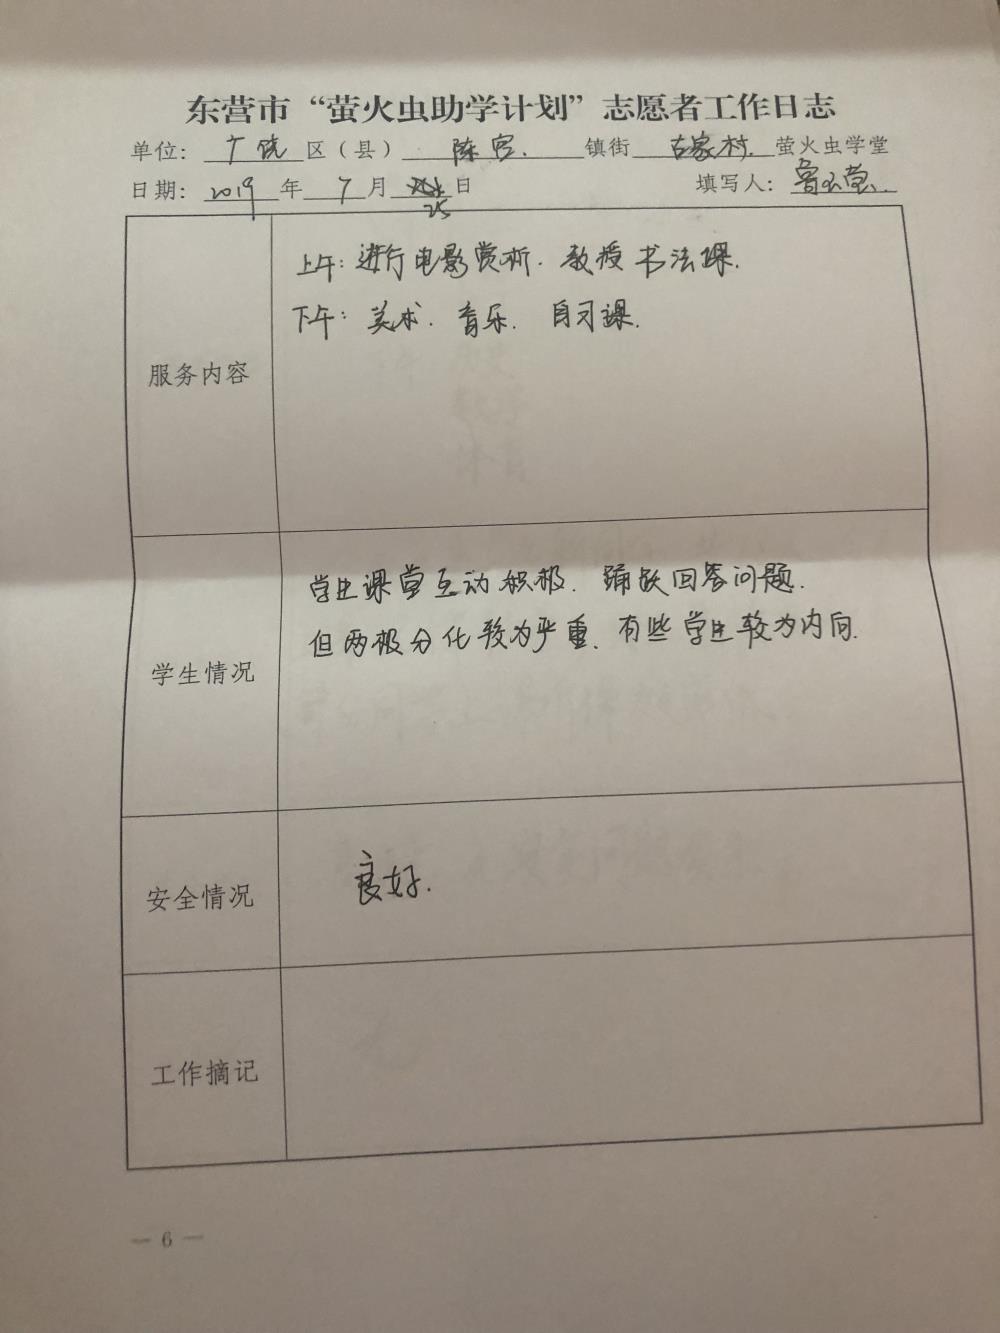 东营市“萤火虫助学计划”志愿者工作日志
单位：广饶区（县）陈官.镇街古家村.萤火虫学堂
日期：2019年7月25日 填写人：
服务内容
上午：进行电影赏析.教授书法课.
下午：美术.音乐.自习课.
学生情况
学生课堂互动积极.踊跃回答问题.
但两极分化较为严重.有些学生较为内向.
安全情况
良好.
工作摘记
— 6 —